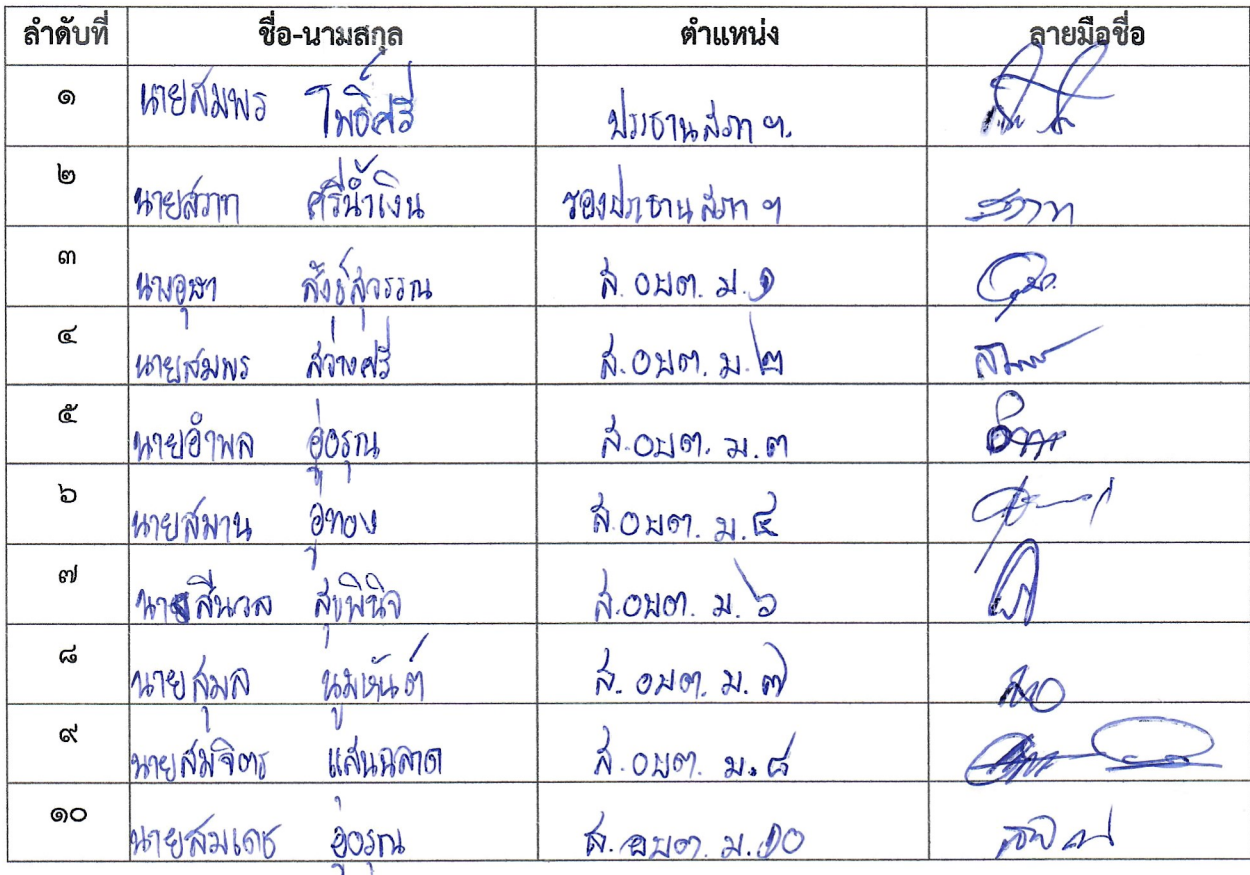 ลำดับที่ ชื่อ-นามสกุล ตำแหน่ง ลายมือชื่อ
๑ นายสมพร โพธิ์ศรี ประธานสภา ฯ.
๒ นายสวาท ศรีน้ำเงิน รองประธานสภา ฯ สวาท
๓ นางอุษา สังข์สุวรรณ ส.อบต. ม.๑
๔ นายสมพร สว่างศรี ส.อบต. ม.๒
๕ นายอำพล อู่อรุณ ส.อบต. ม.๓
๖ นายสมาน อู่ทอง ส.อบต. ม.๔
๗ นายสีนวล สุขพินิจ ส.อบต. ม.๖
๘ นายสุมล ส.อบต. ม.๗
๙ นายสมจิตร แสนฉลาด ส.อบต. ม.๘
๑๐ นายสมเดช อู่อรุณ ส.อบต. ม.๑๐